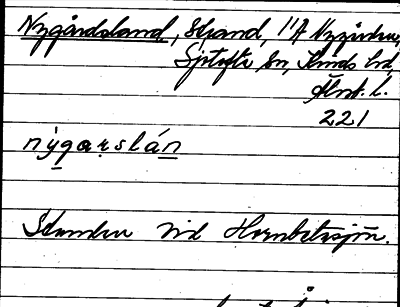 Nygårdsland, Strand, 1/4 Nygården,
Sjötofta sn, Kinds hd,
Älvsb. l.
221
nýgaṛslán
Stranden vid Hornbetsjön.